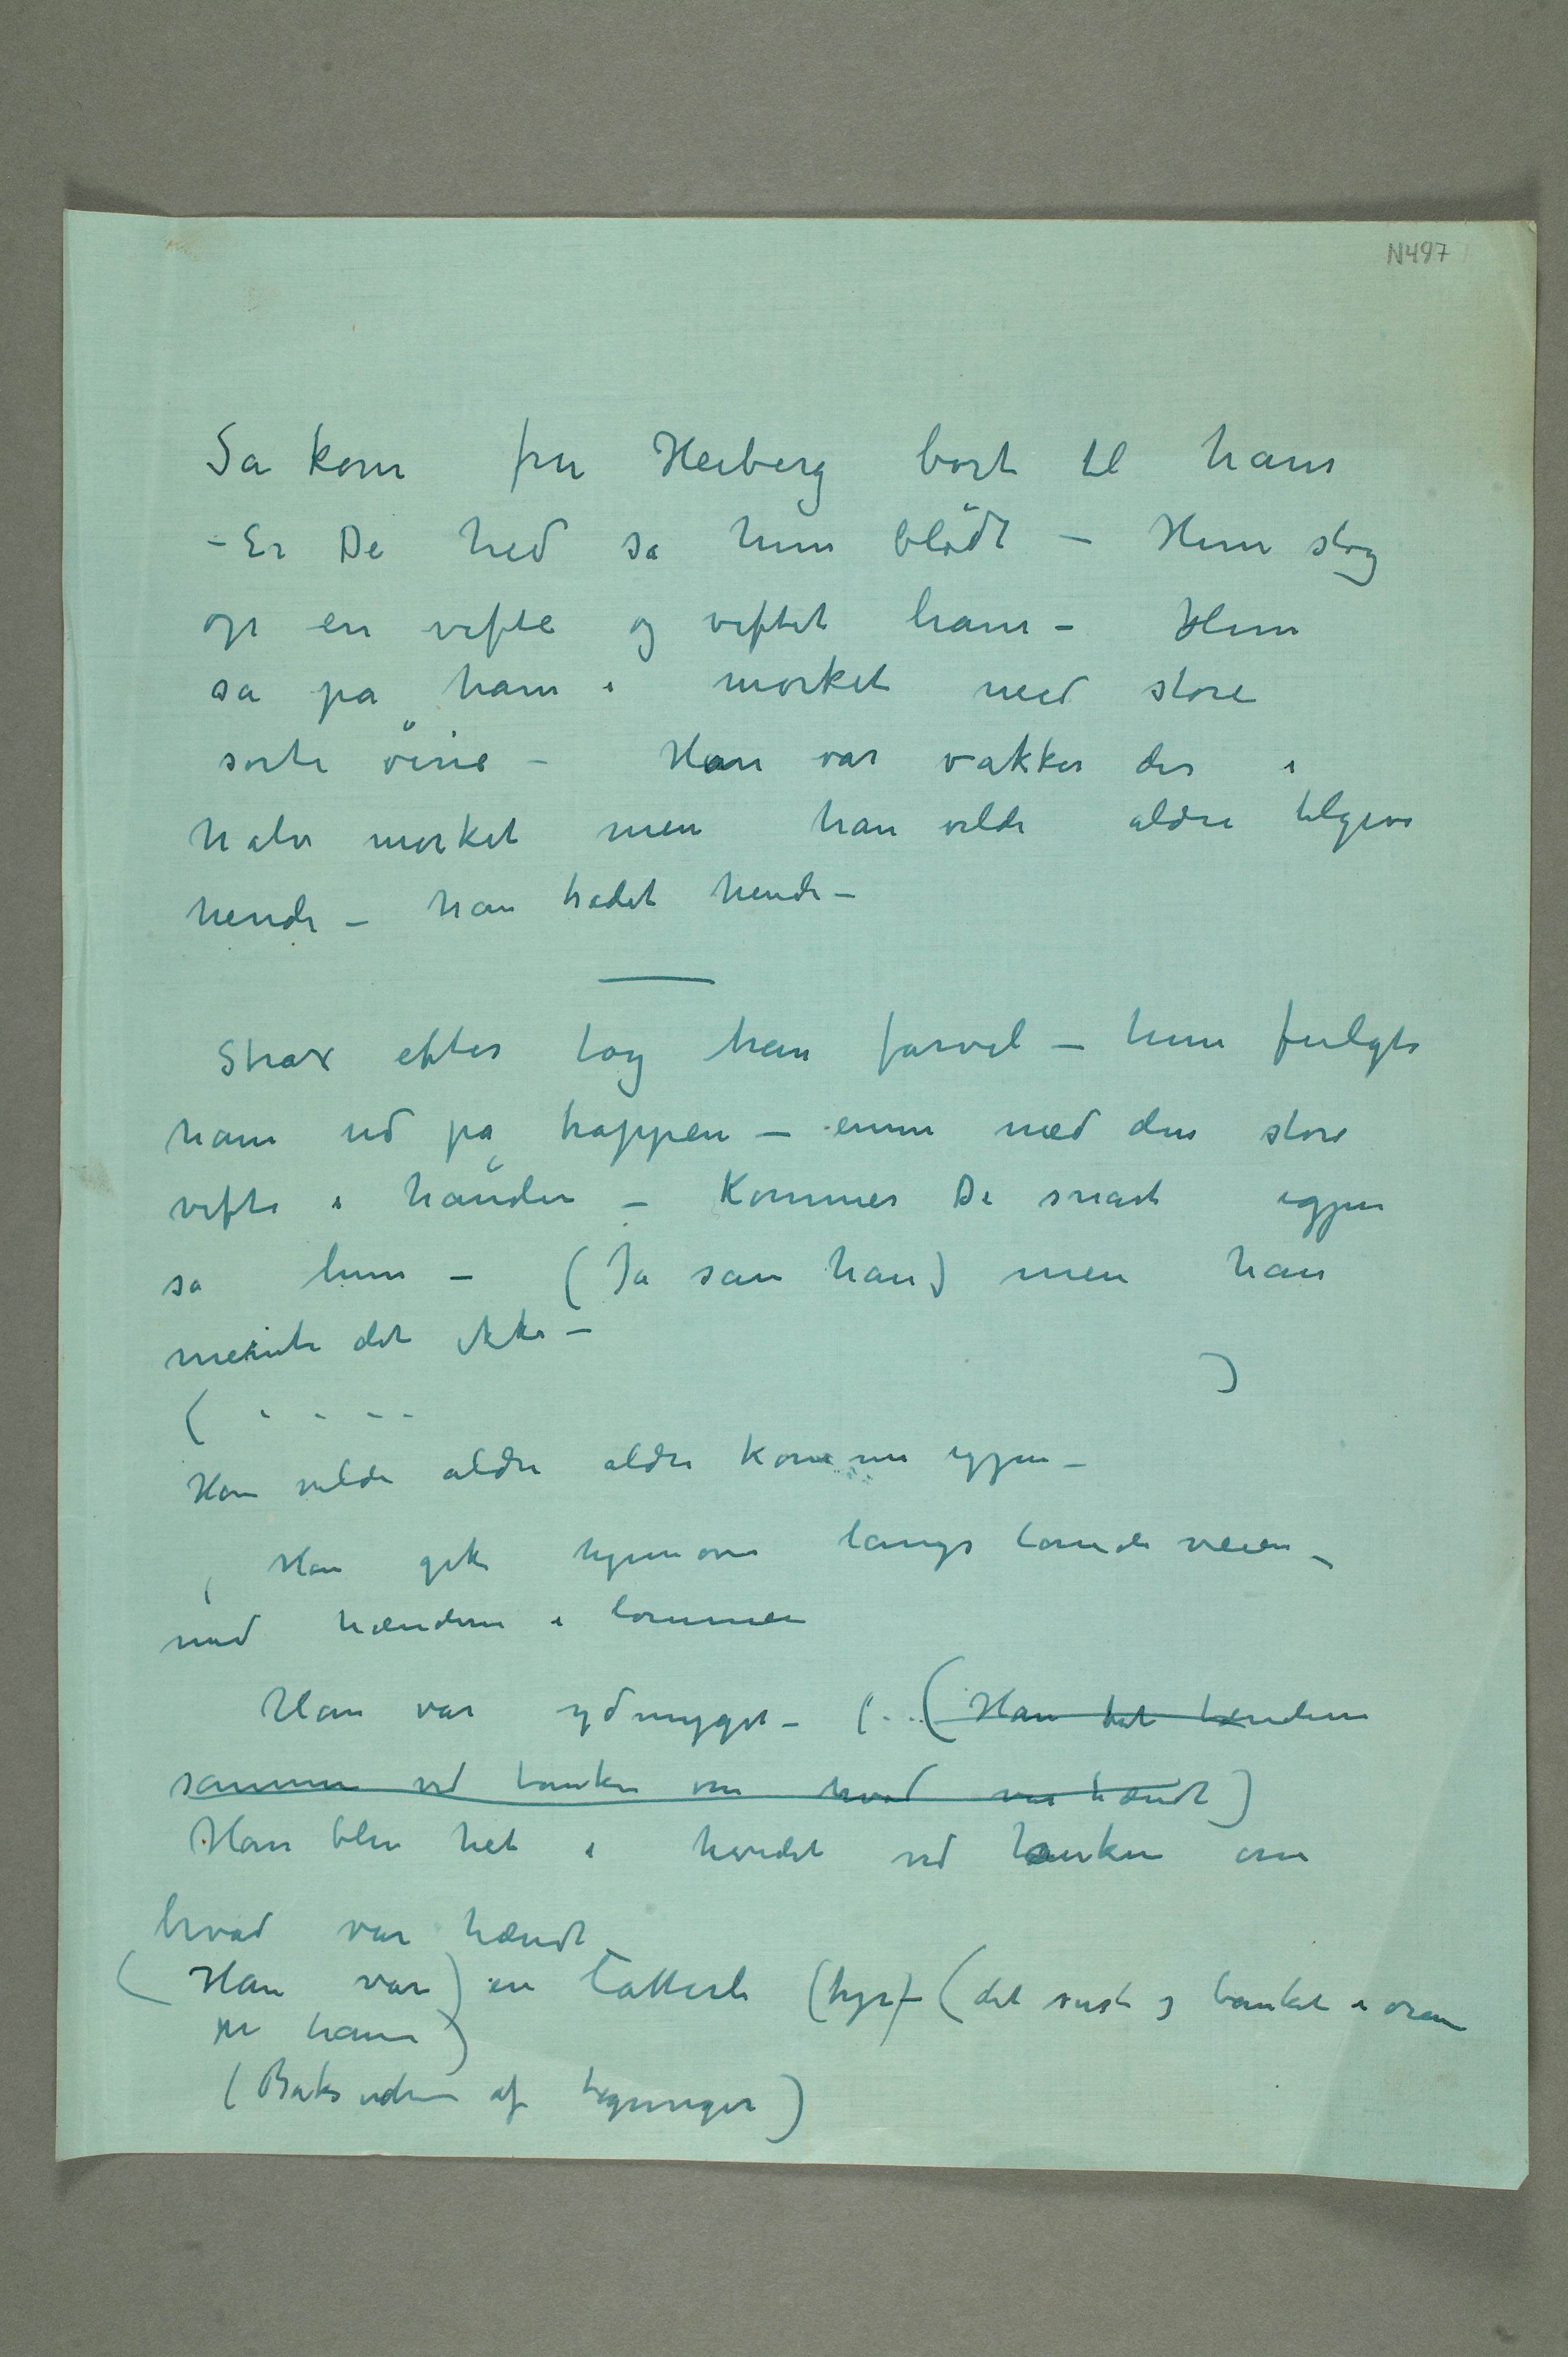 N497
Sa kom fru Heiberg bort til ham
– Er De hed sa hun blödt – Hun slog
op en vifte og viftet ham – Hun
sa pa ham i morket med store
sorte öine – Han var vakker der i
halv morket men han vilde aldri tilgive
hende – han hadet hende –
Strax efter tog han farvel – hun fulgte
ham ud på trappen – ennu med den store
vifte i hånden – Kommer De snart igjen
sa hun – (Ja sae han) men han
mente det ikke –
( - - - - )
Han vilde aldri aldri komme igjen –
Han gik hjemover langs landeveien –
med hænderne i lommen
Han var ydmyget – (.. (Han bet tænderne
sammen ved tanken om hvad var hændt)
Han blev het i hovedet ved tanken om
hvad var hændt
(Han var) en latterli (fyr) – (det suste og banket i øren
på ham)
(Baksiden af tegninger)